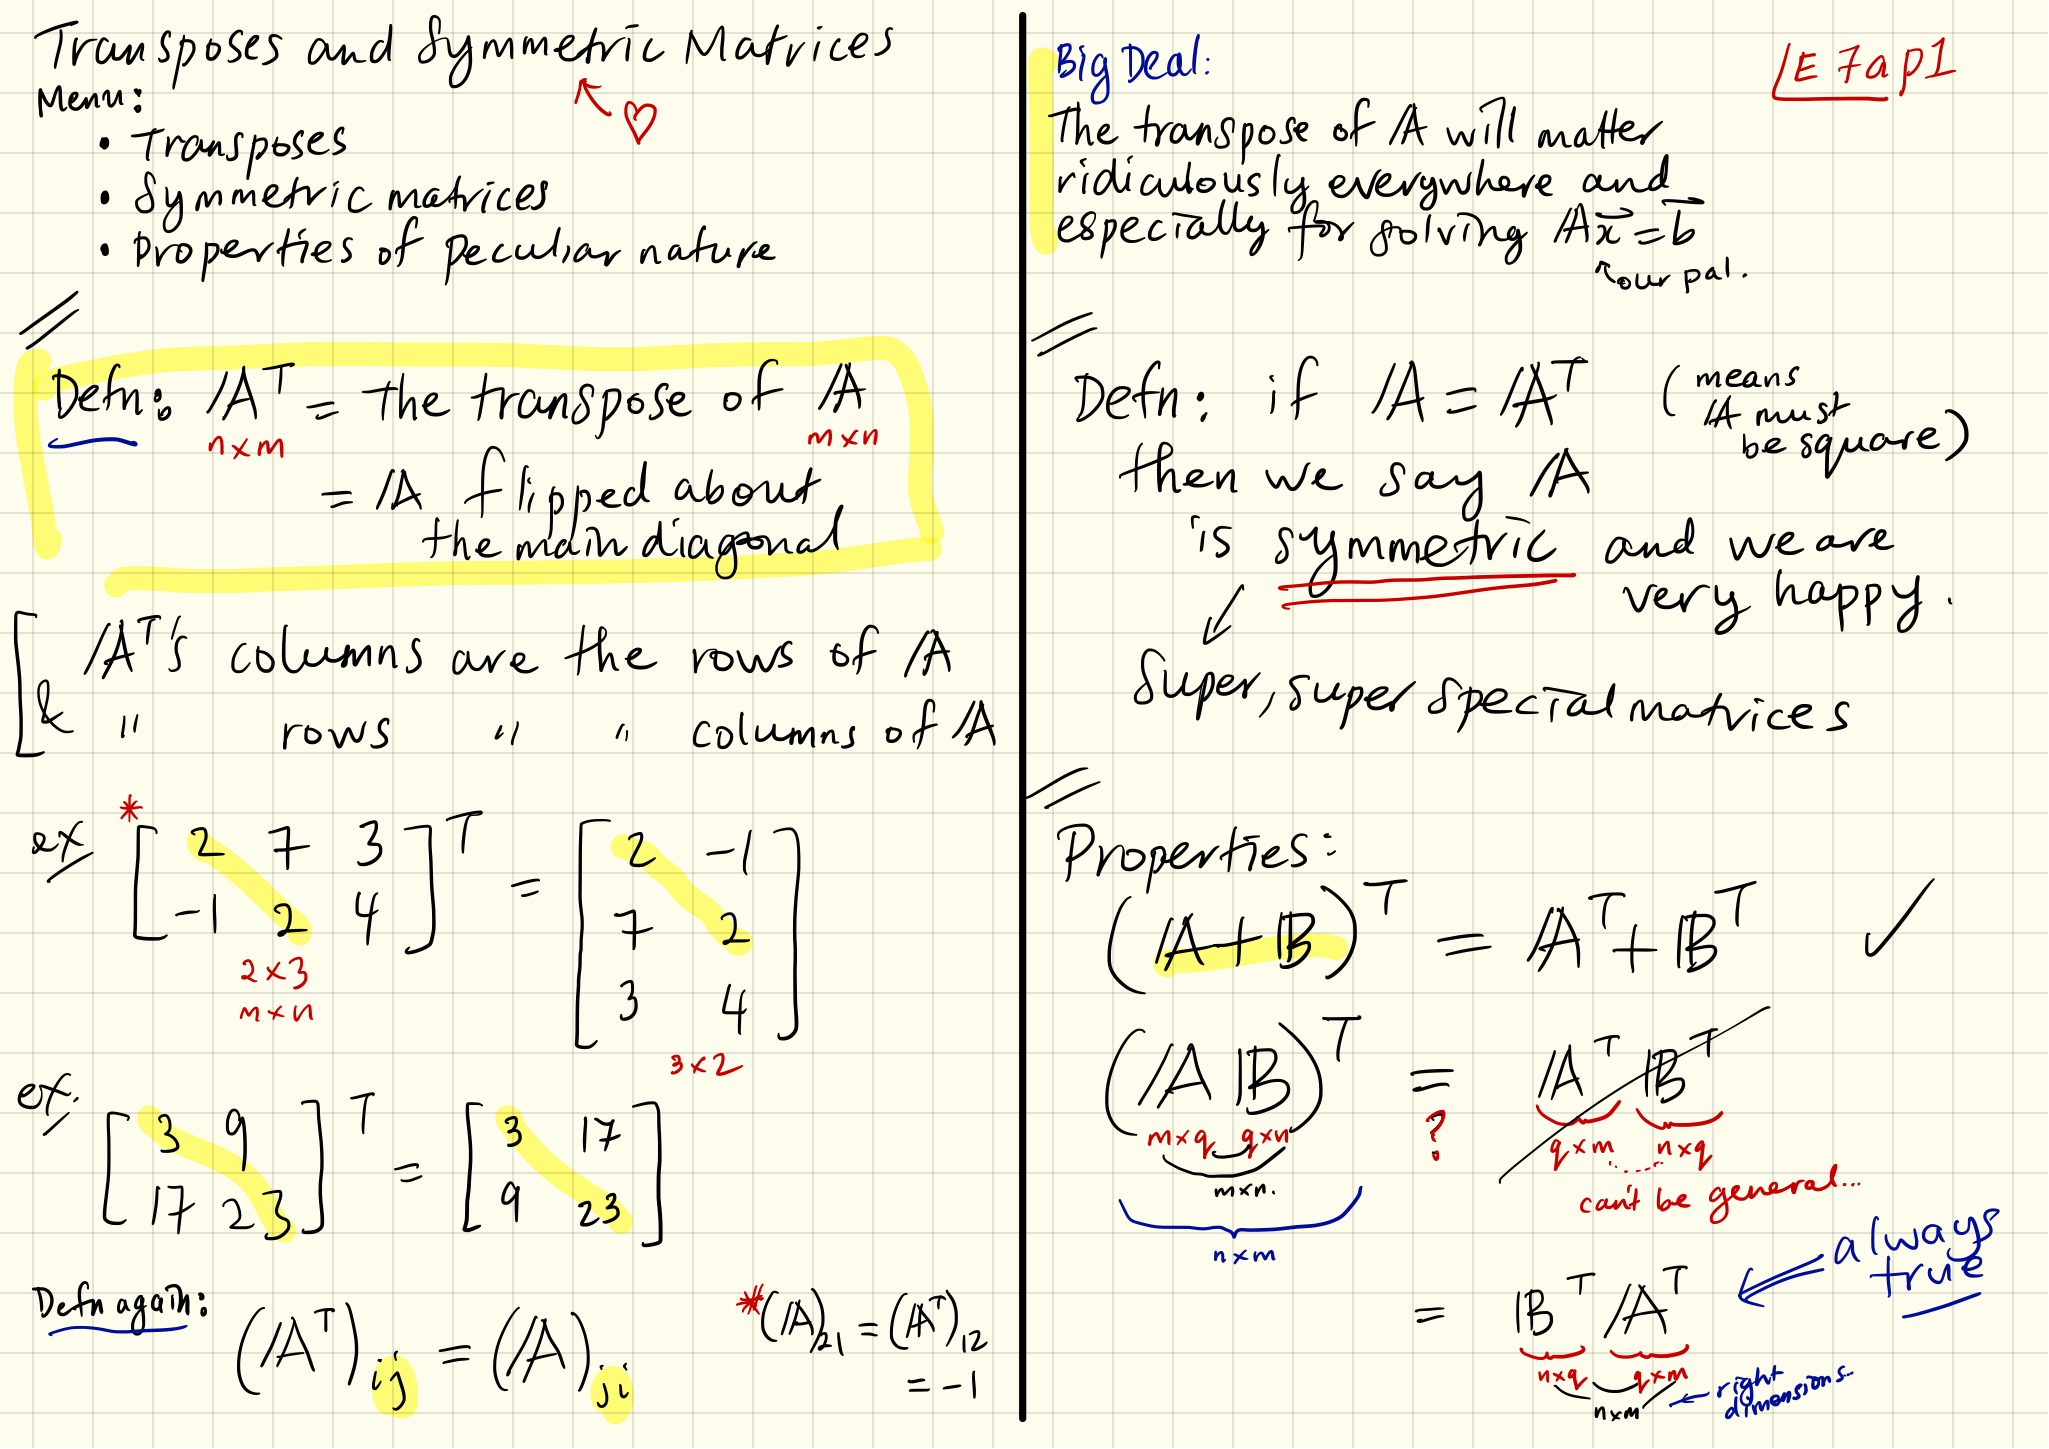 Transposes and Symmetric Matrices
♡
Menu:
• Transposes
• Symmetric matrices
• Properties of peculiar nature
Defn: Aᵀ = the transpose of A
n×m m×n
= A flipped about
the main diagonal
Aᵀ's columns are the rows of A
& " rows " " columns of A
ex * [2 7 3; -1 2 4]ᵀ = [2 -1; 7 2; 3 4]
2×3
m×n
3×2
ex. [3 9; 17 23]ᵀ = [3 17; 9 23]
Defn again: (Aᵀ)ij = (A)ji
* (A)21 = (Aᵀ)12
= -1
E7ap1
Big Deal:
The transpose of A will matter
ridiculously everywhere and
especially for solving Ax⃗ = b⃗
our pal.
Defn: if A = Aᵀ (means
A must
be square)
then we say A
is symmetric and we are
very happy.
Super, super special matrices
Properties:
(A + B)ᵀ = Aᵀ + Bᵀ ✓
(A B)ᵀ = Aᵀ Bᵀ
m×q q×n ? q×m n×q
m×n.
can't be general...
n×m
always
true
= Bᵀ Aᵀ
n×q q×m
n×m
right
dimensions...